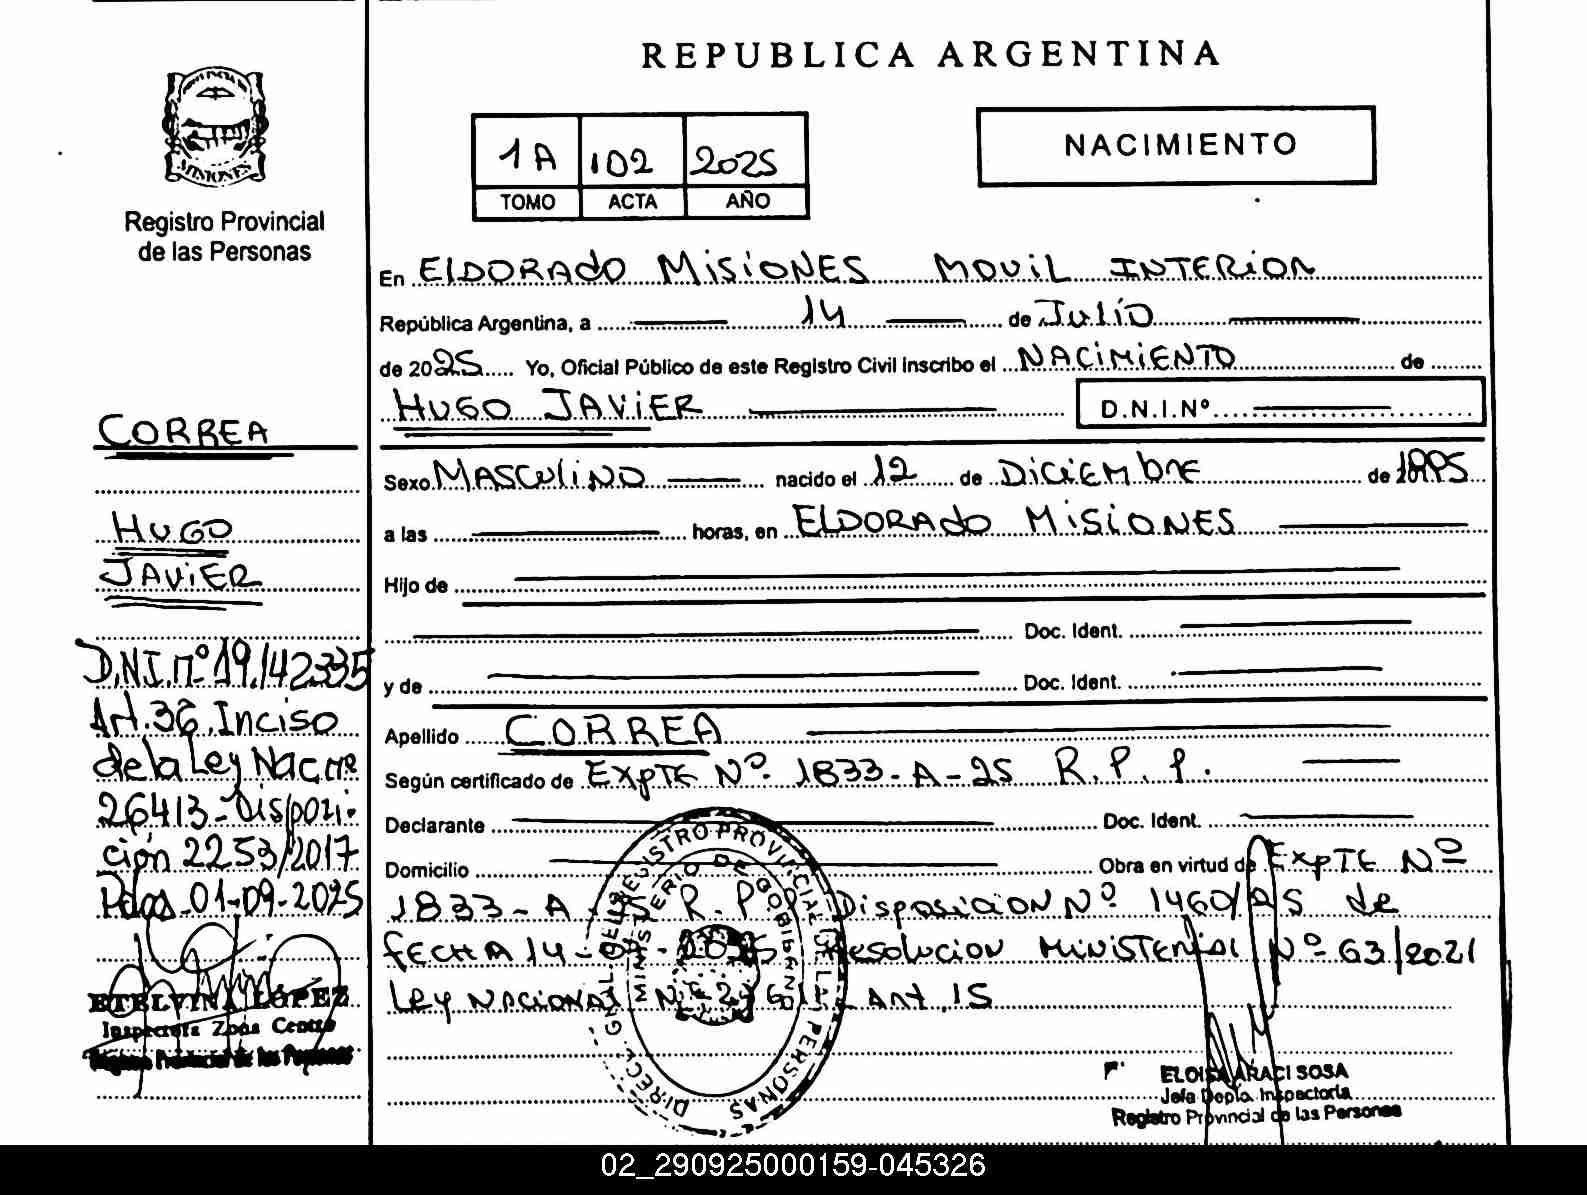 REPUBLICA ARGENTINA
MISIONES
Registro Provincial
de las Personas
1A 102 2025
TOMO ACTA AÑO
NACIMIENTO
En ElDORADO MISIONES MOVIL INTERIOR
República Argentina, a 14 de Julio
de 2025 Yo, Oficial Público de este Registro Civil inscribo el NACIMIENTO de
HUGO JAVIER D.N.I.Nº
Sexo MASCULINO nacido el 12 de DICIEMBRE de
a las horas, en ELDORADO MISIONES
Hijo de
Doc. Ident.
y de Doc. Ident.
Apellido CORREA
Según certificado de EXPTE Nº 1833-A-25 R.P.P.
Declarante Doc. Ident.
Domicilio Obra en virtud de EXPTE Nº
1833-A R.P. Disposicion Nº 1460/25 de
fECHA 14- Resolucion MINISTERIAL Nº 63/2021
Ley NACIONAL Art. 15
DIRECC. GRAL. DEL REGISTRO PROVINCIAL DE LAS PERSONAS
MINISTERIO DE GOBIERNO
ELOISA ARACI SOSA
Jefa Depto. Inspectoria
Registro Provincial de las Personas
CORREA
HUGO
JAVIER
D.N.I. nº 19.142335
Art. 36, Inciso
de la Ley Nac nº
26413-Disposi-
ción 2253/2017
Pdas 01-09-2025
ETELVINA LÓPEZ
Inspectora Zona Centro
Registro Provincial de las Personas
02_290925000159-045326